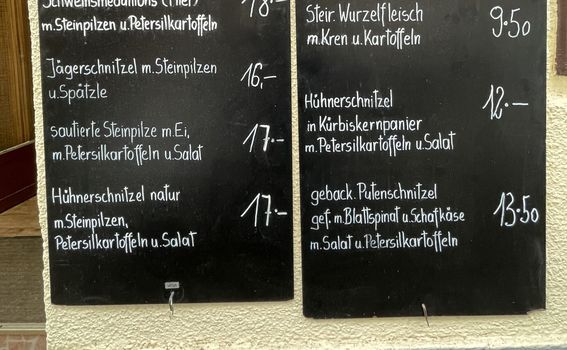 Schweinsmedaillons (Filet) 18.-
m.Steinpilzen u.Petersilkartoffeln
Jägerschnitzel m.Steinpilzen 16,-
u.Spätzle
sautierte Steinpilze m.Ei, 17.-
m.Petersilkartoffeln u.Salat
Hühnerschnitzel natur
m.Steinpilzen, 17.-
Petersilkartoffeln u.Salat
Steir. Wurzelfleisch 9.50
m.Kren u.Kartoffeln
Hühnerschnitzel 12.-
in Kürbiskernpanier
m.Petersilkartoffeln u.Salat
geback. Putenschnitzel
gef. m.Blattspinat u.Schafkäse 13.50
m.Salat u.Petersilkartoffeln